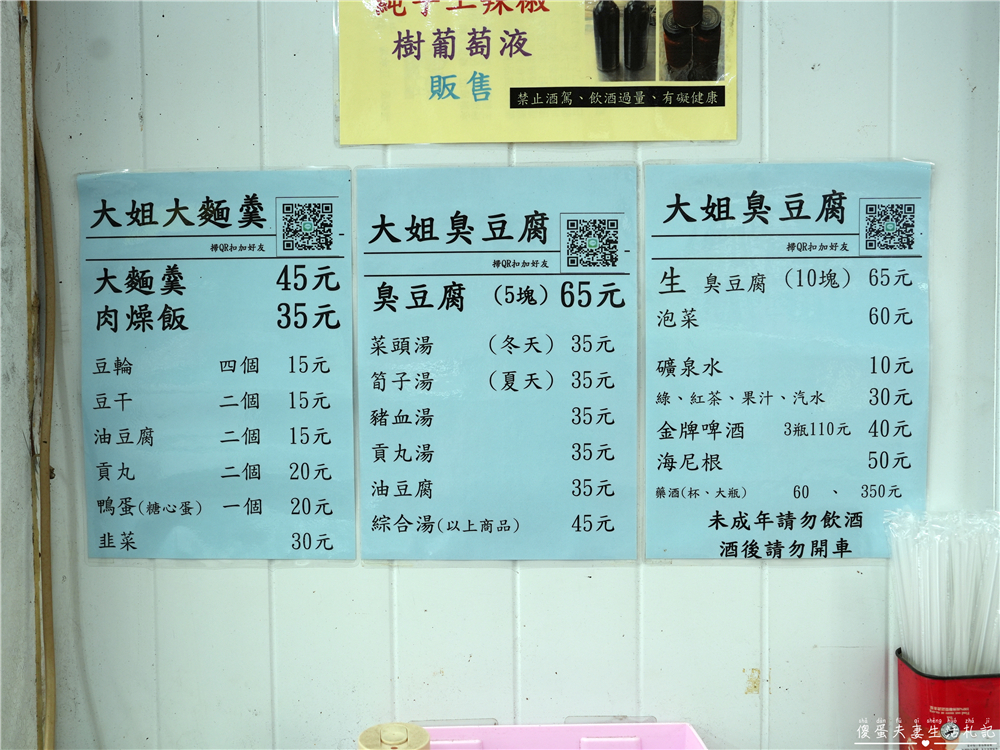 純手工辣椒
樹葡萄液
販售
禁止酒駕、飲酒過量、有礙健康
大姐大麵羹
掃QR扣加好友
大麵羹 45元
肉燥飯 35元
豆輪 四個 15元
豆干 二個 15元
油豆腐 二個 15元
貢丸 二個 20元
鴨蛋(糖心蛋) 一個 20元
韭菜 30元
大姐臭豆腐
掃QR扣加好友
臭豆腐 (5塊) 65元
菜頭湯 (冬天) 35元
筍子湯 (夏天) 35元
豬血湯 35元
貢丸湯 35元
油豆腐 35元
綜合湯(以上商品) 45元
大姐臭豆腐
掃QR扣加好友
生 臭豆腐 (10塊) 65元
泡菜 60元
礦泉水 10元
綠、紅茶、果汁、汽水 30元
金牌啤酒 3瓶110元 40元
海尼根 50元
藥酒(杯、大瓶) 60 、 350元
未成年請勿飲酒
酒後請勿開車
傻蛋夫妻生活札記